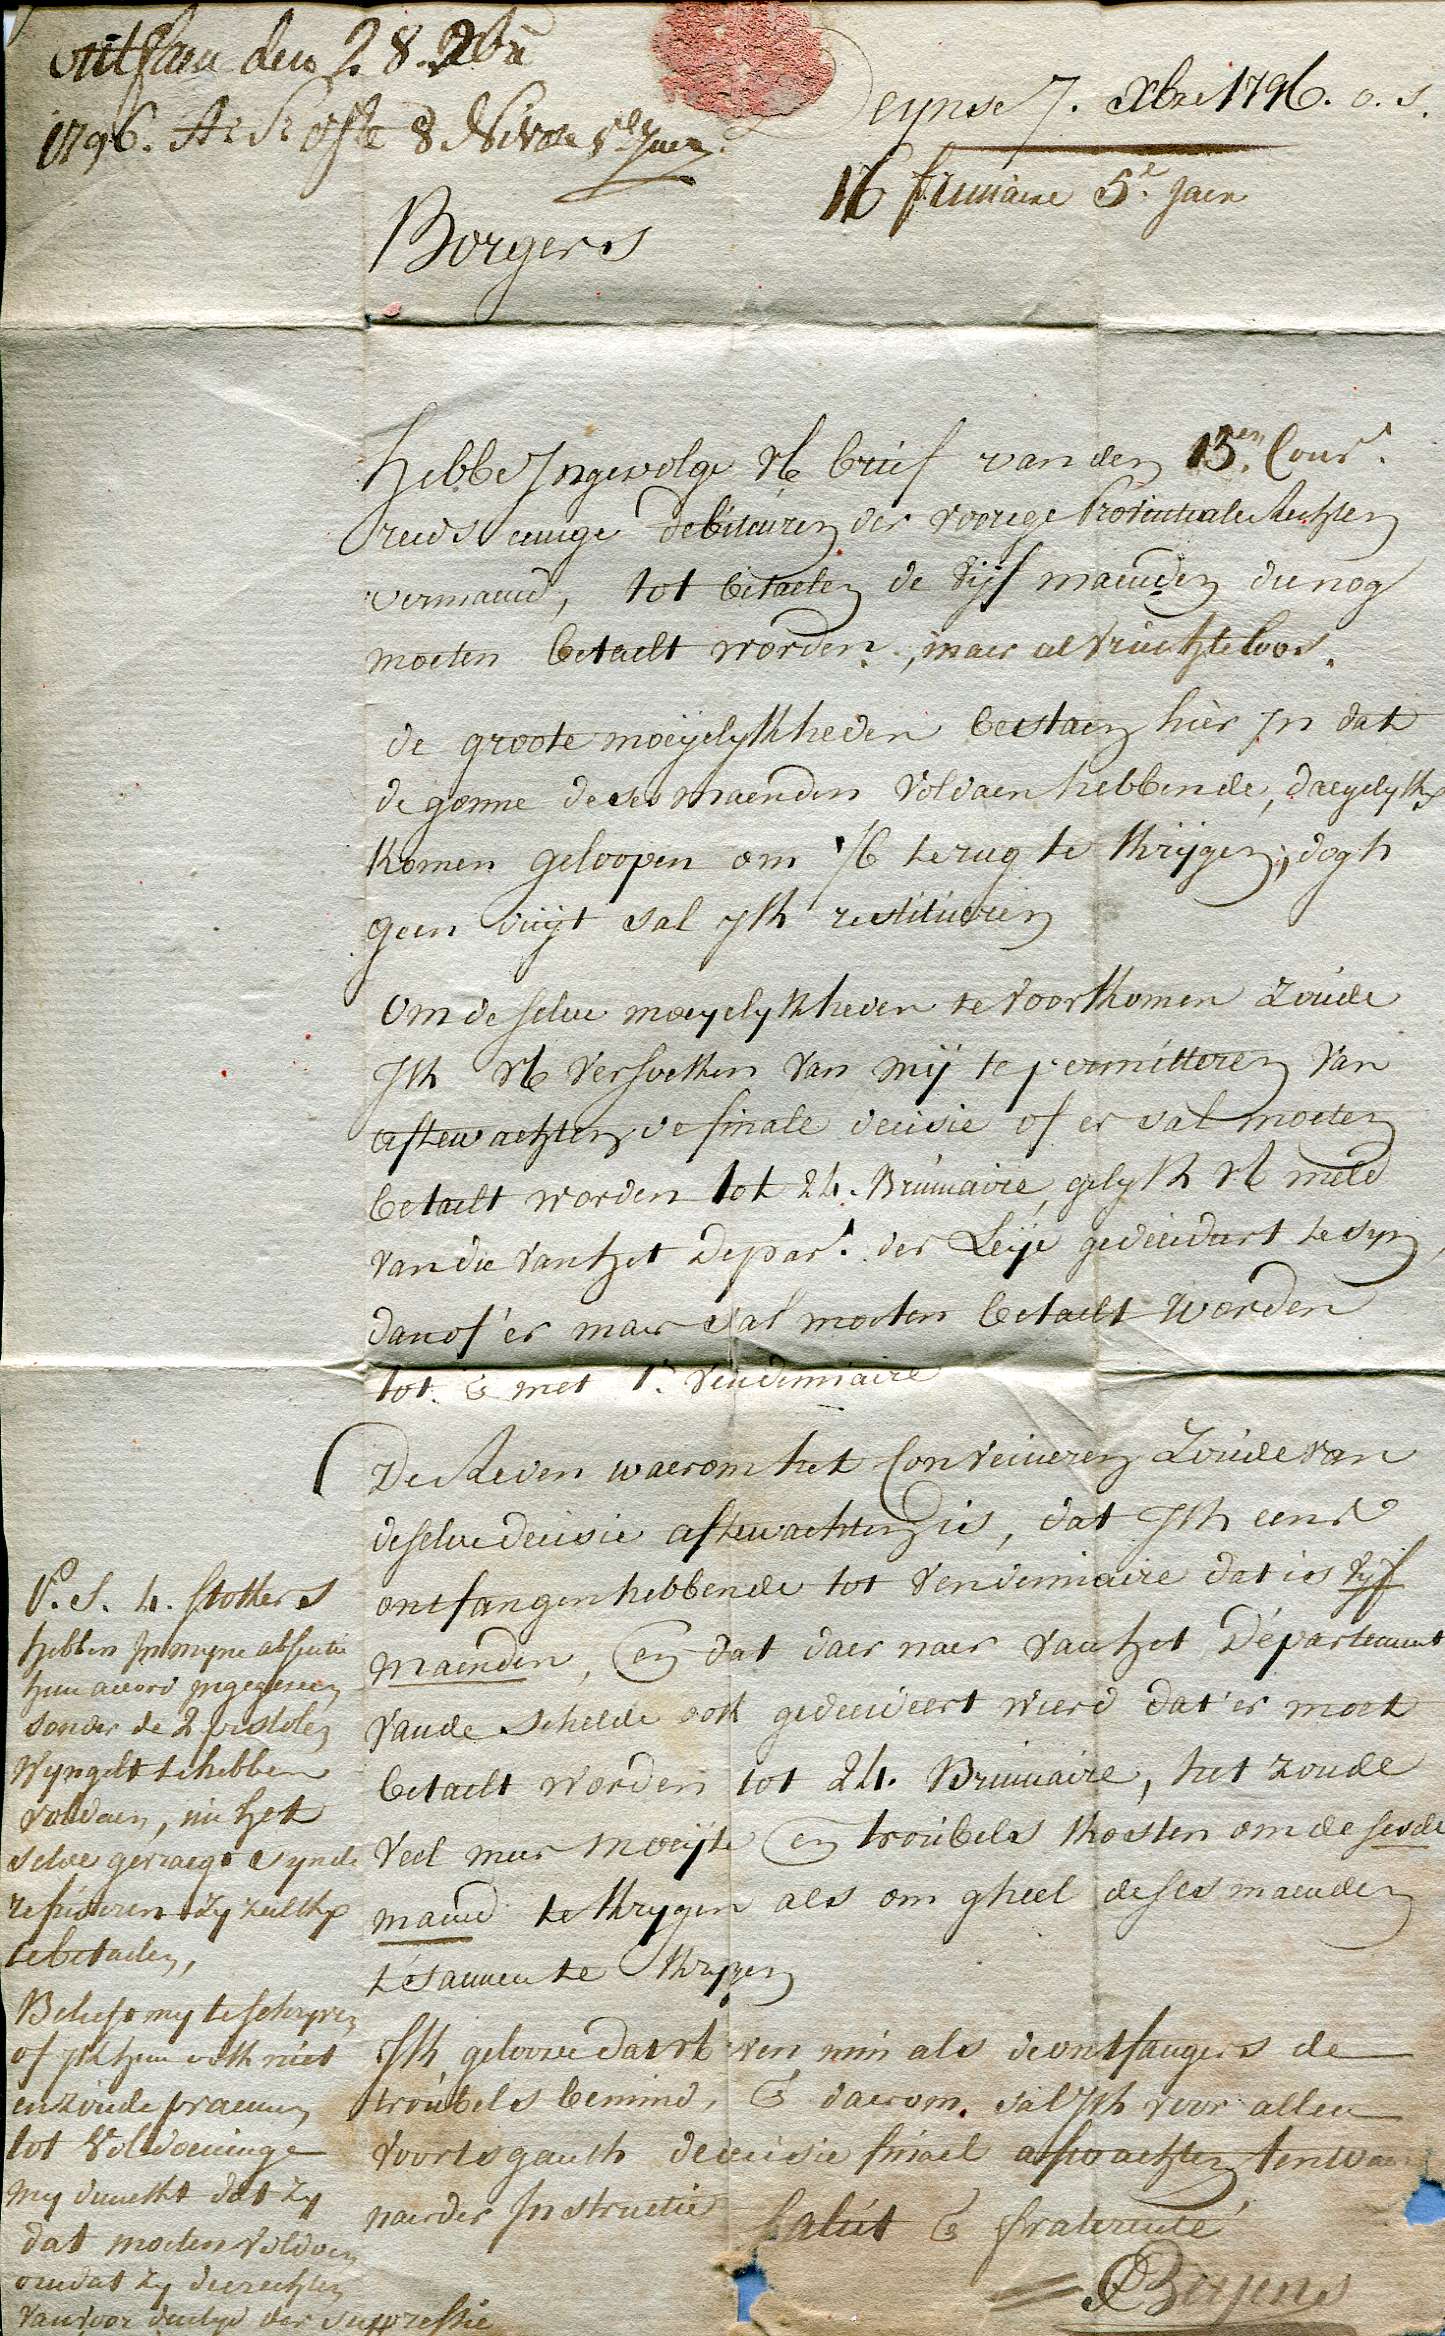 ontfaen den 28. Xbre
1796. 8 Nivose 5e Jaer
Deynse 7. Xbre 1796. o. s.
16 frimaire 5e Jaer
Borgers
hebbe Ingevolge Ul brief van den 13en Cour.t
reeds eenige debiteuren der voorige Provintiale Rechten
vermaend, tot betaelen de vijf maenden die nog
moeten betaelt worden, maer al vruchteloos.
de groote moeyelykheden bestaen hier In dat
de gonne dese maenden voldaen hebbende, daegelykx
komen geloopen om te rug te krijgen; dogh
geen duyt sal yk restitueren
Om de selve moeyelykheden te voorkomen zoude
Ik Ul versoeken van mij te permitteren van
af te wachten de finale decisie of er sal moeten
betaelt worden tot 24. Brumaire, gelyk Ul meld
van die van het Depar.t der Leije gedecideert te syn,
dan of er maer sal moeten betaelt worden
tot & met 1.e Vendemiaire
De Reden waerom het Convenieren zoude van
de selve decisie af te wachten is, dat Ik eens
ontfangen hebbende tot Vendemiaire dat is vyf
maenden, en dat daer naer van het Departement
van de Schelde ook gedecideert wierd dat er moet
betaelt worden tot 24. Brumaire, het zoude
veel meer moeyte en troubels kosten om de sesde
maend te krygen als om gheel de ses maenden
t'samen te krygen
Ik geloove dat Ul even min als de ontfangers de
troubels bemind, & daerom sal Ik voor allen
voortsgank decisie finael afwachten
naerder Instructie
Salut & fraternité
Beyens
P. S. 4. stokers
hebben In myne absentie
hun accord Ingegeven
sonder de 2 pistolen
wyngelt te hebben
voldaen, nu het
selve gevraegt synde
refuseren zy zulkx
te betaelen,
Belieft my te schryven
of Ik hun ook niet
en zoude praemen
tot voldoeninge
my dunkt dat zy
dat moeten voldoen
omdat zy de rechten
van voor den tyd der suppressie